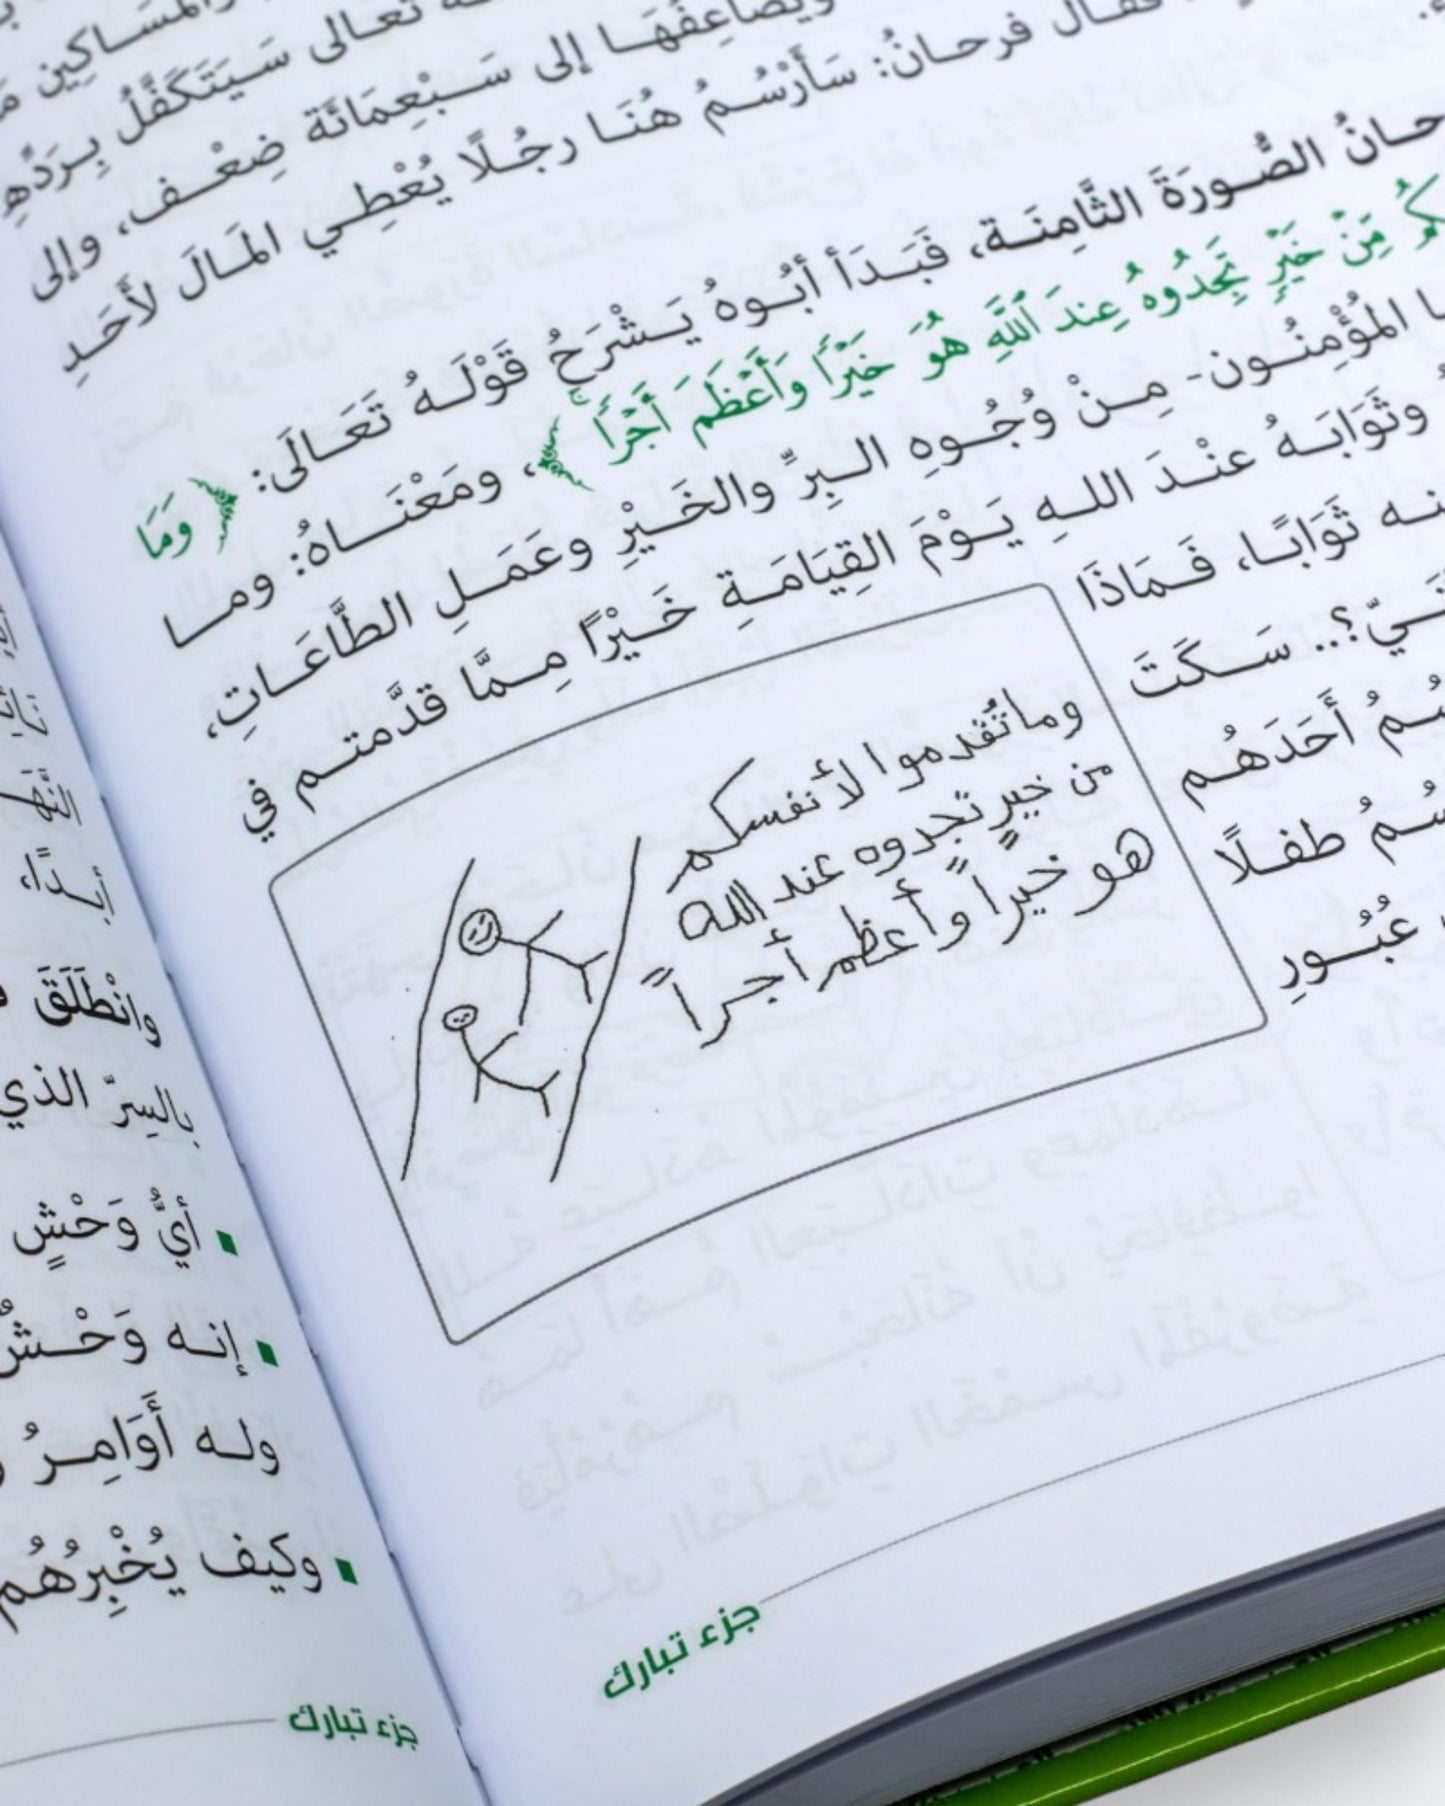 والمَسَاكِين
تعالى سَيَتَكَفَّلُ بِرَدِّهِ
ويُضَاعِفُهَا إلى سَبْعِمَائَة ضِعْف، وإلى
فقال فرحانُ: سَأَرْسُمُ هُنَا رجُلًا يُعْطِي المَالَ لأَحَدِ
حانُ الصُّورَةَ الثَّامِنَة، فَبَدَأ أبُوهُ يَشْرَحُ قَوْلَهُ تَعَالَى: ﴿ وَمَا
مِّنْ خَيْرٍ تَجِدُوهُ عِندَ ٱللَّهِ هُوَ خَيْرًا وَأَعْظَمَ أَجْرًا ۚ ﴾، ومَعْنَاهُ: وما
المُؤْمِنُون- مِنْ وُجُوهِ البِرِّ والخَيْرِ وعَمَلِ الطَّاعَاتِ،
وثَوَابَهُ عنْدَ اللهِ يَوْمَ القِيَامَةِ خَيْرًا مِمَّا قدَّمتم في
ثَوَابًا، فَمَاذَا
سَكَتَ
أَحَدَهُم
طفلًا
عُبُورِ
وما تُقدموا لأنفسكم
من خيرٍ تجدوه عند الله
هو خيراً وأعظم أجراً
جزء تبارك
النَّهَا
أبدًا،
وانْطَلَقَ
بالسِرّ الذي
▪ أيُّ وَحْشٍ
▪ إنه وَحْشٌ
وله أَوَامِرُ
▪ وكيف يُخْبِرُهُم
جزء تبارك